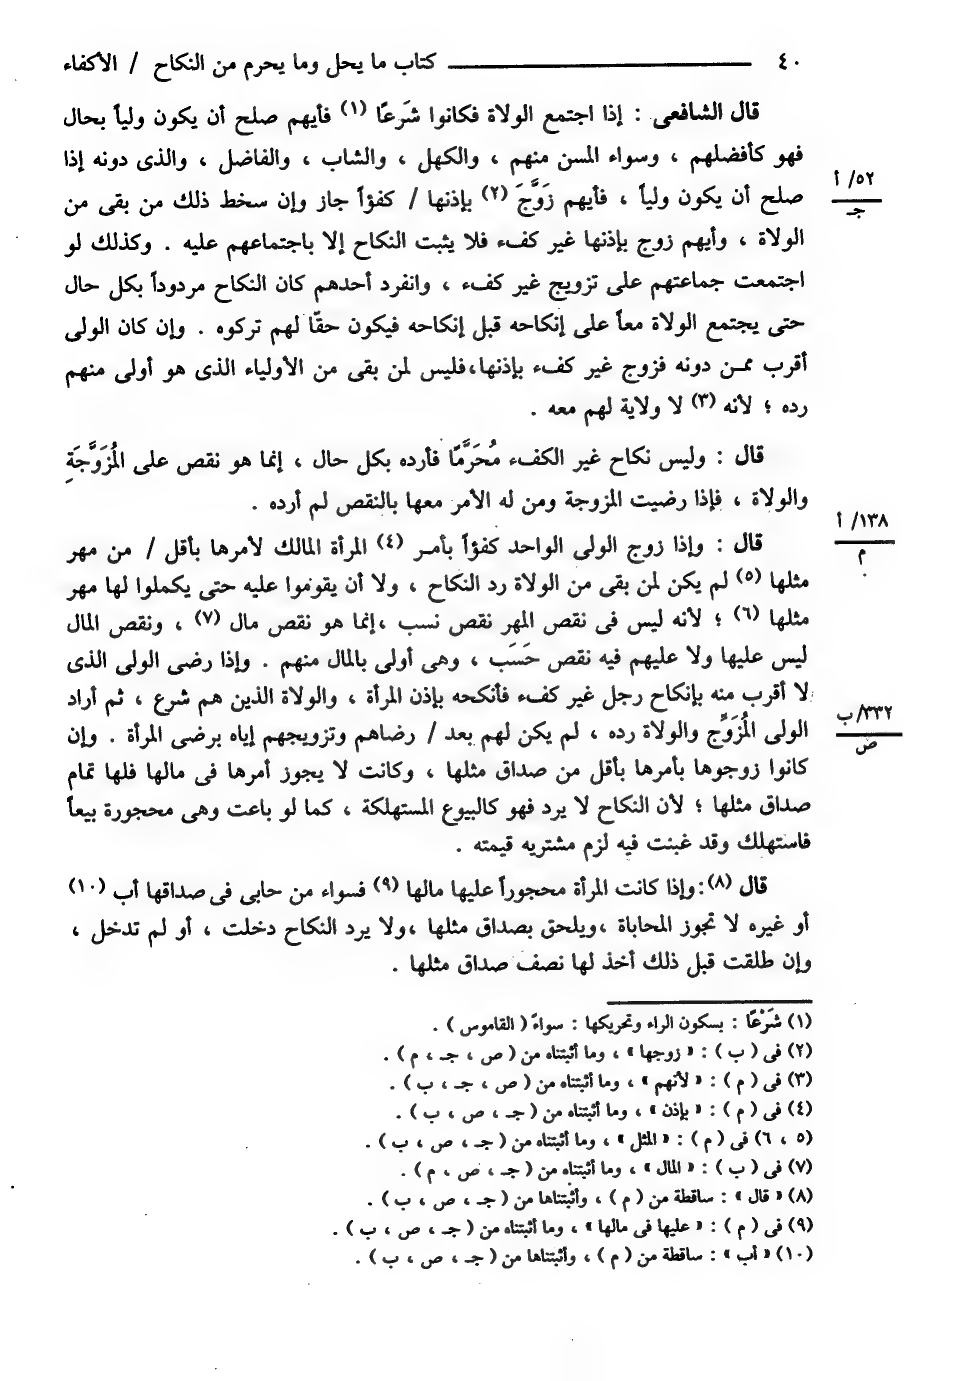 ٤٠ ــــــــــــــــــــ كتاب ما يحل وما يحرم من النكاح / الأكفاء
قال الشافعى : إذا اجتمع الولاة فكانوا شَرَعًا (١) فأيهم صلح أن يكون ولياً بحال
فهو كأفضلهم ، وسواء المسن منهم ، والكهل ، والشاب ، والفاضل ، والذى دونه إذا
٥٢/ أ
جـ
صلح أن يكون ولياً ، فأيهم زَوَّجَ (٢) بإذنها / كفؤاً جاز وإن سخط ذلك من بقى من
الولاة ، وأيهم زوج بإذنها غير كفء فلا يثبت النكاح إلا باجتماعهم عليه . وكذلك لو
اجتمعت جماعتهم على تزويج غير كفء ، وانفرد أحدهم كان النكاح مردوداً بكل حال
حتى يجتمع الولاة معاً على إنكاحه قبل إنكاحه فيكون حقّا لهم تركوه . وإن كان الولى
أقرب ممن دونه فزوج غير كفء بإذنها،فليس لمن بقى من الأولياء الذى هو أولى منهم
رده ؛ لأنه (٣) لا ولاية لهم معه .
قال : وليس نكاح غير الكفء مُحَرَّمًا فأرده بكل حال ، إنما هو نقص على المُزَوَّجَةِ
والولاة ، فإذا رضيت المزوجة ومن له الأمر معها بالنقص لم أرده .
١٣٨/ أ
م
قال : وإذا زوج الولى الواحد كفؤاً بأمر (٤) المرأة المالك لأمرها بأقل / من مهر
مثلها (٥) لم يكن لمن بقى من الولاة رد النكاح ، ولا أن يقوموا عليه حتى يكملوا لها مهر
مثلها (٦) ؛ لأنه ليس فى نقص المهر نقص نسب ،إنما هو نقص مال (٧) ، ونقص المال
ليس عليها ولا عليهم فيه نقص حَسَب ، وهى أولى بالمال منهم . وإذا رضى الولى الذى
لا أقرب منه بإنكاح رجل غير كفء فأنكحه بإذن المرأة ، والولاة الذين هم شرع ، ثم أراد
٣٣٢/ب
ص
الولى المُزَوِّج والولاة رده ، لم يكن لهم بعد / رضاهم وتزويجهم إياه برضى المرأة . وإن
كانوا زوجوها بأمرها بأقل من صداق مثلها ، وكانت لا يجوز أمرها فى مالها فلها تمام
صداق مثلها ؛ لأن النكاح لا يرد فهو كالبيوع المستهلكة ، كما لو باعت وهى محجورة بيعاً
فاستهلك وقد غبنت فيه لزم مشتريه قيمته .
قال (٨):وإذا كانت المرأة محجوراً عليها مالها (٩) فسواء من حابى فى صداقها أب (١٠)
أو غيره لا تجوز المحاباة ،ويلحق بصداق مثلها ،ولا يرد النكاح دخلت ، أو لم تدخل ،
وإن طلقت قبل ذلك أخذ لها نصف صداق مثلها .
(١) شَرْعًا : بسكون الراء وتحريكها : سواءً ( القاموس ) .
(٢) فى ( ب ) : « زوجها » ، وما أثبتناه من ( ص ، جـ ، م ) .
(٣) فى ( م ) : « لأنهم » ، وما أثبتناه من ( ص ، جـ ، ب ) .
(٤) فى ( م ) : « بإذن » ، وما أثبتناه من ( جـ ، ص ، ب ) .
(٥ ، ٦) فى ( م ) : « المثل » ، وما أثبتناه من ( جـ ، ص ، ب ) .
(٧) فى ( ب ) : « المال » ، وما أثبتناه من ( جـ ، ص ، م ) .
(٨) « قال » : ساقطة من ( م ) ، وأثبتناها من ( جـ ، ص ، ب ) .
(٩) فى ( م ) : « عليها فى مالها » ، وما أثبتناه من ( جـ ، ص ، ب ) .
(١٠) « أب » : ساقطة من ( م ) ، وأثبتناها من ( جـ ، ص ، ب ) .